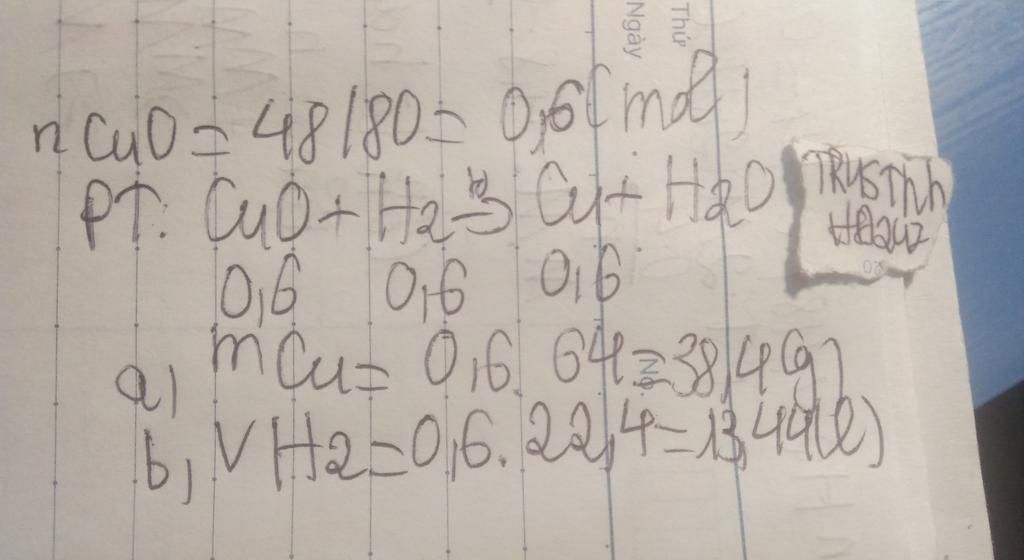 Thứ
Ngày
n CuO = 48/80 = 0,6 (mol)
PT: CuO + H2 → Cu + H2O
0,6 0,6 0,6
a) mCu = 0,6. 64 = 38,4(g)
b) VH2 = 0,6. 22,4 = 13,44(l)